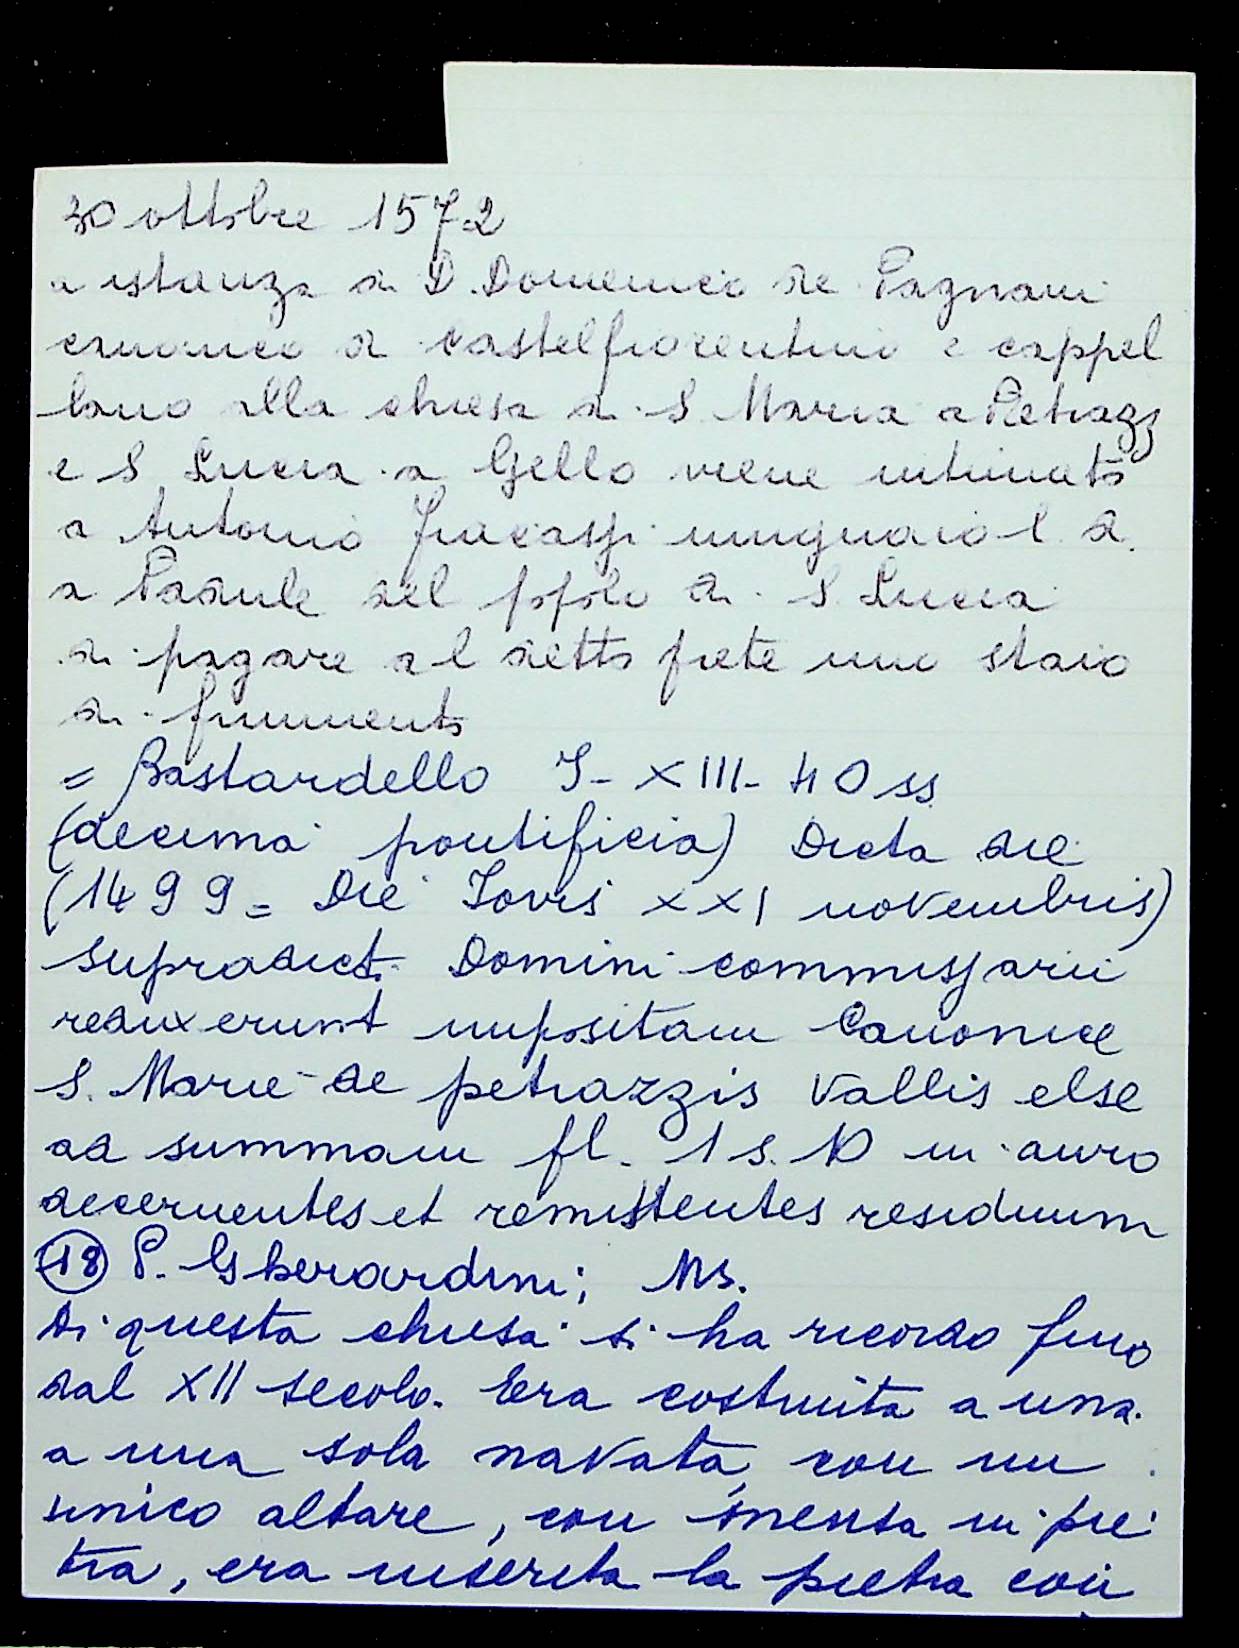 30 ottobre 1572
a istanza di D. Domenico de Pagnani
canonico di Castelfiorentino e cappel
lano alla chiesa di S. Maria a Petrazz
e S Lucia a Gello viene intimato
a Antonio Fracassi mugnaio l. d.
a Padule del popolo di S. Lucia
di pagare al detto prete uno staio
di frumento
= Bastardello I - XIII - 40 ss
(decima pontificia) Dicta die
(1499 = Die Iovis XXI novembris)
supradict. Domini commissarii
reduxerunt impositam Canonice
S. Marie de petrazzis Vallis else
ad summam fl. 1 s. 10 in auro
decernentes et remittentes residuum
(18) P. Gherardini; Ms.
Di questa chiesa si ha ricordo fino
dal XII secolo. Era costruita a una
a una sola navata, con un
unico altare, con mensa in pie
tra, era inserita la pietra con